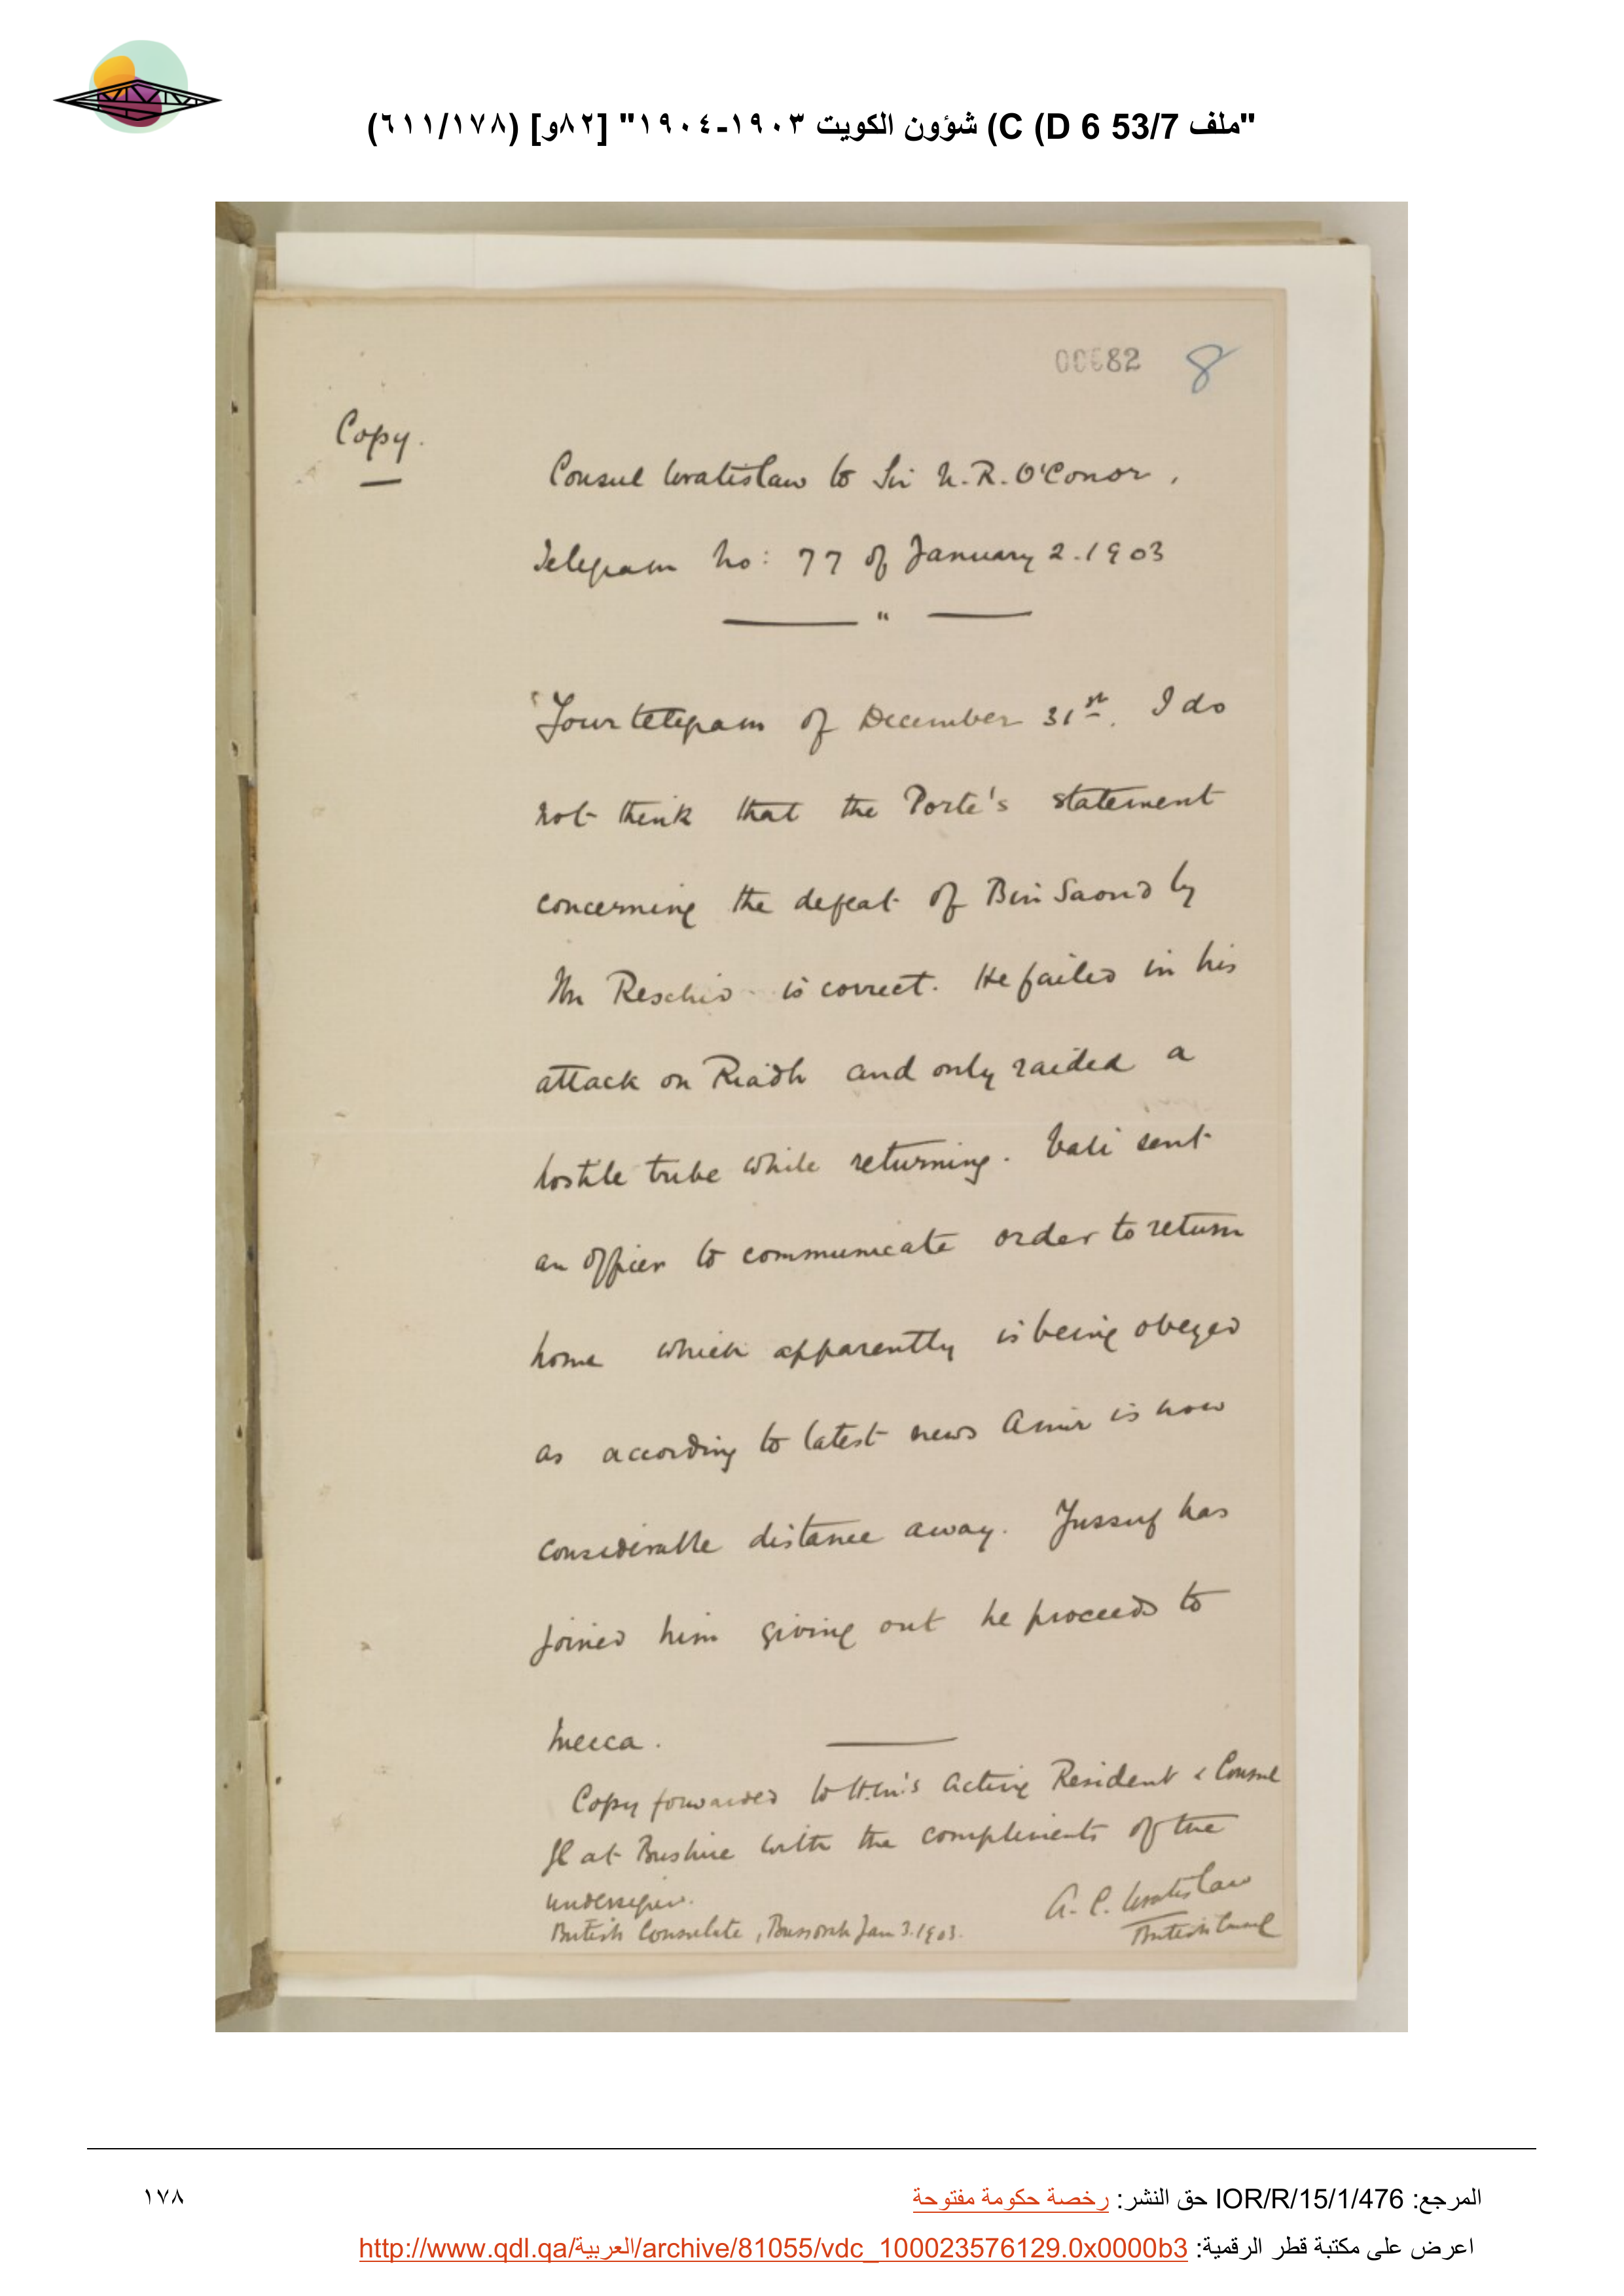 "ملف 53/7 C (D 6) شؤون الكويت ١٩٠٣-١٩٠٤" [٨٢و] (٦١١/١٧٨)
00082 8
Copy.
Consul Wratislaw to Sir N. R. O'Conor,
Telegram No: 77 of January 2. 1903
"Your telegram of December 31st. I do
not think that the Porte's statement
concerning the defeat of Bin Saoud by
Ibn Reschid is correct. He failed in his
attack on Riadh and only raided a
hostile tribe while returning. Vali sent
an officer to communicate order to return
home which apparently is being obeyed
as according to latest news Amir is now
considerable distance away. Yussuf has
joined him giving out he proceeds to
Mecca.
Copy forwarded to H.M.'s Acting Resident & Consul
Gl at Bushire with the compliments of the
undersigned.
A. C. Wratislaw
British Consulate, Bussorah Jan 3. 1903.
British Consul
المرجع: IOR/R/15/1/476 حق النشر: رخصة حكومة مفتوحة
١٧٨
اعرض على مكتبة قطر الرقمية: http://www.qdl.qa/العربية/archive/81055/vdc_100023576129.0x0000b3